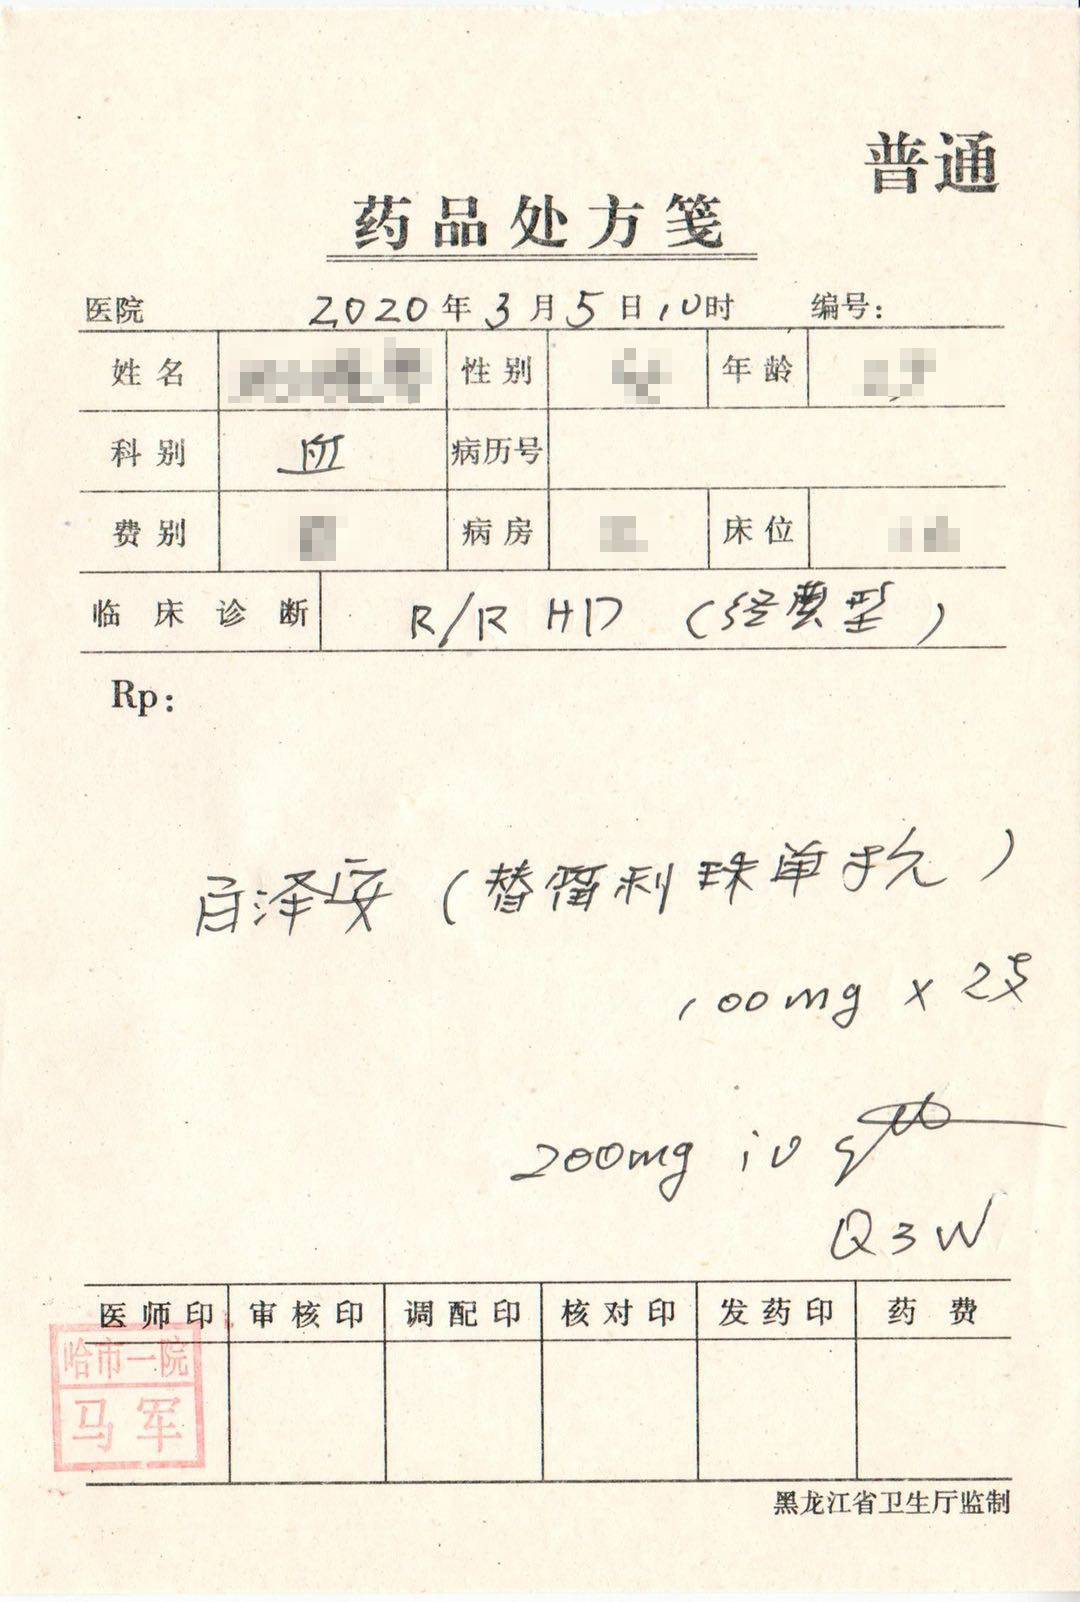 普通
药品处方笺
医院 2020年3月5日10时 编号:
姓名 性别 年龄
科别 血 病历号
费别 病房 床位
临床诊断 R/R HD (经典型)
Rp:
百泽安(替雷利珠单抗)
100mg x 2支
200mg iv
Q3W
医师印 审核印 调配印 核对印 发药印 药费
哈市一院
马军
黑龙江省卫生厅监制